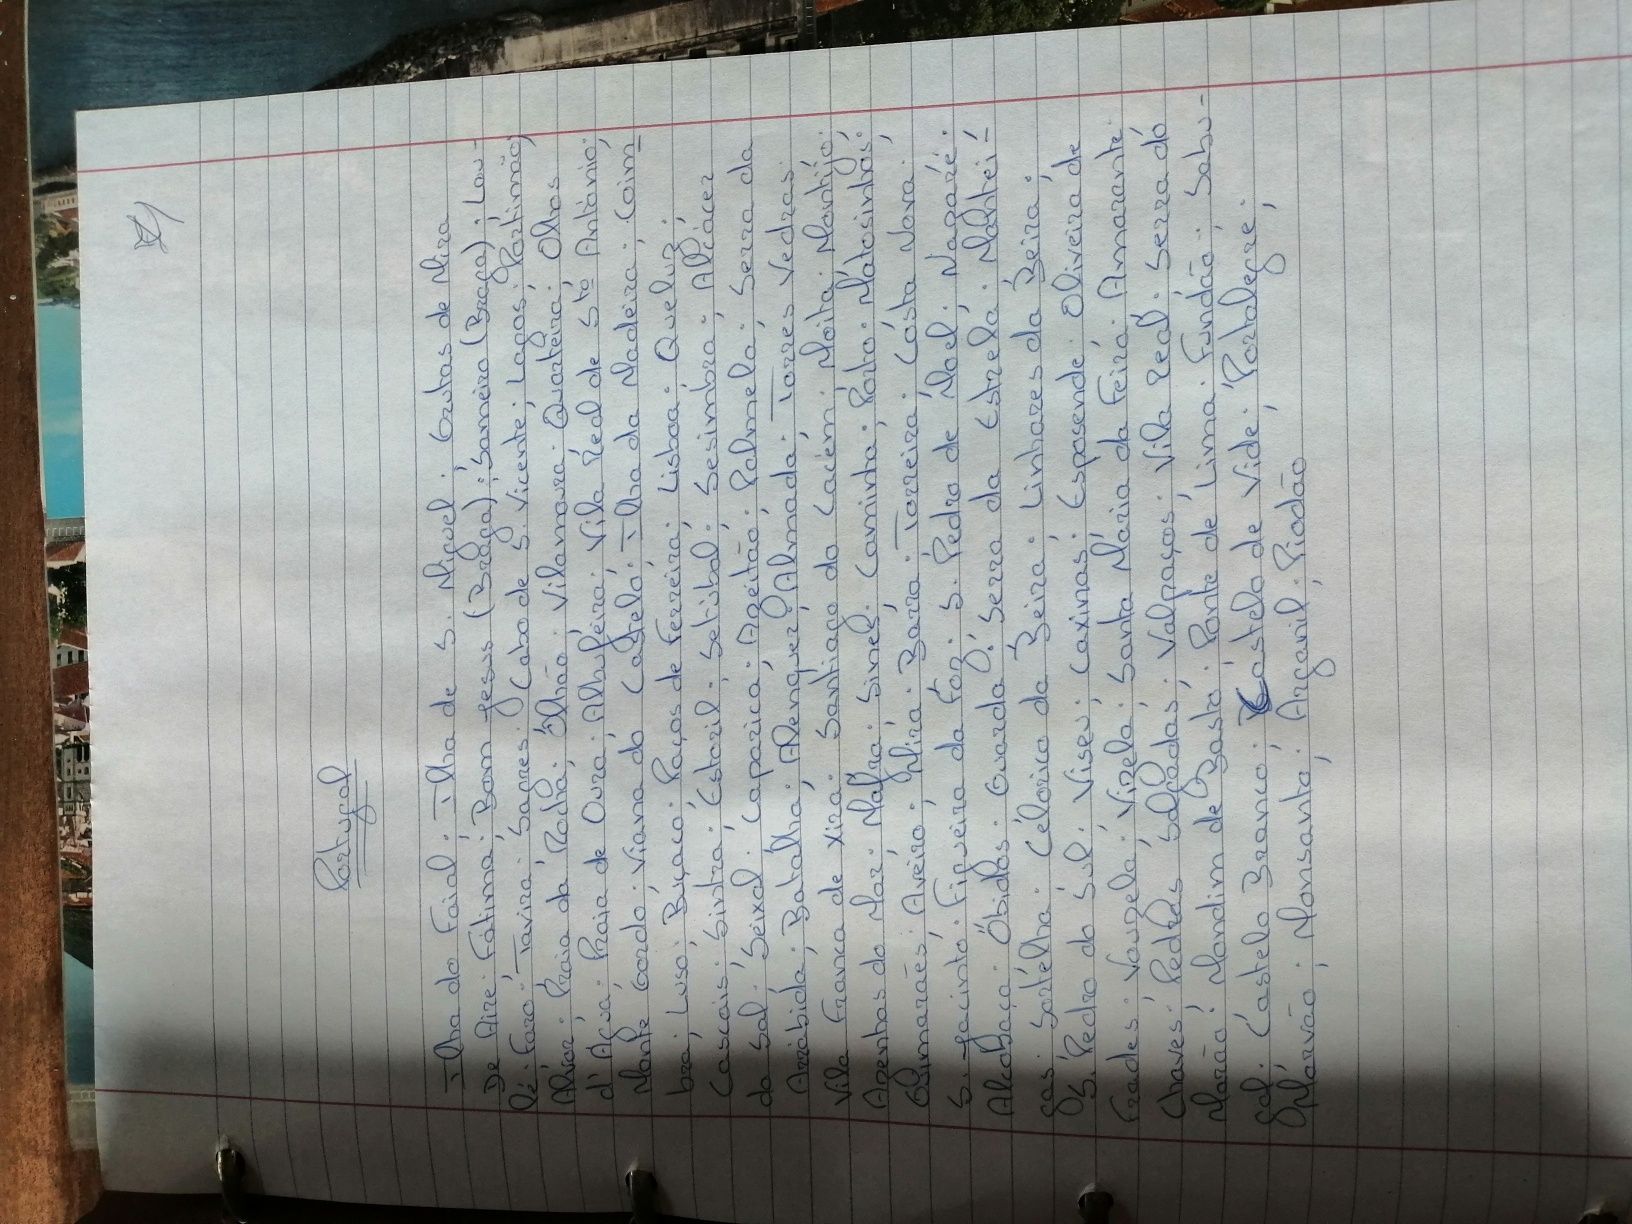 Portugal
Ilha do Faial; Ilha de S. Miguel; Grutas de Mira
De Aire; Fatima; Bom Jesus (Braga); Sameiro (Braga); Lou-
lé; Faro; Tavira; Sagres; Cabo de S. Vicente; Lagos; Portimão;
Alvor; Praia da Rocha; Olhão; Vilamoura; Quarteira; Olhos
d'Água; Praia de Oura; Albufeira; Vila Real de Stº António;
Monte Gordo; Viana do Castelo; Ilha da Madeira; Coim-
bra; Luso; Buçaco; Paços de Ferreira; Lisboa; Queluz;
Cascais; Sintra; Estoril; Setúbal; Sesimbra; Alcácer
do Sal; Seixal; Caparica; Azeitão; Palmela; Serra da
Arrábida; Batalha; Alenquer; Almada; Torres Vedras
Vila Franca de Xira; Santiago do Cacém; Moita; Montijo;
Azenhas do Mar; Mafra; Sines; Caminha; Porto; Matosinhos;
Guimarães; Aveiro; Mira; Barra; Torreira; Costa Nova;
S. Jacinto; Figueira da Foz; S. Pedro de Moel; Nazaré;
Alcobaça; Óbidos; Guarda; Serra da Estrela; Mantei-
gas; Sortelha; Celorico da Beira; Linhares da Beira;
S. Pedro do Sul; Viseu; Caxinas; Esposende; Oliveira de
Frades; Vouzela; Vizela; Santa Maria da Feira; Amarante;
Chaves; Pedras Salgadas; Valpaços; Vila Real; Serra do
Marão; Mondim de Basto; Ponte de Lima; Fundão; Sabu-
gal; Castelo Branco; Castelo de Vide; Portalegre;
Marvão; Monsanto; Arganil; Piodão